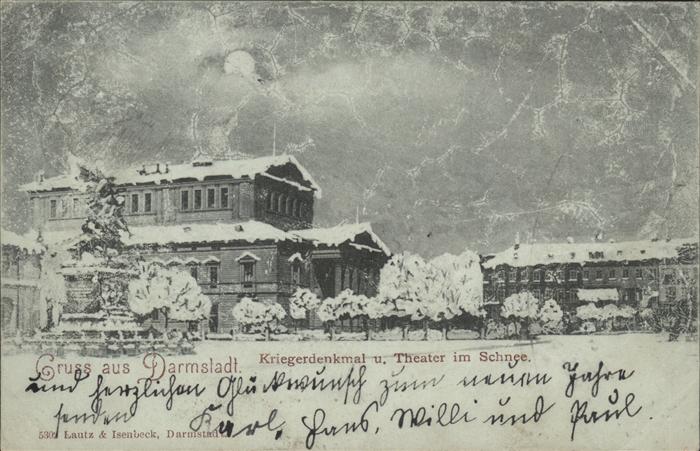 Gruss aus Darmstadt.
Kriegerdenkmal u. Theater im Schnee.
und herzlichen Glückwunsch zum neuen Jahre
senden Karl, Hans, Willi und Paul.
Lautz & Isenbeck, Darmstadt.